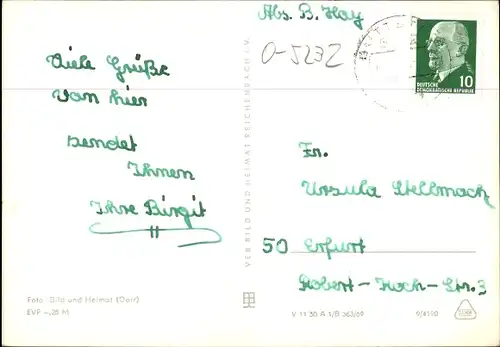 Abs. B. Hay
O-5232
Viele Grüße
von hier
sendet
Ihnen
Ihre Birgit
10
DEUTSCHE
DEMOKRATISCHE REPUBLIK
VEB BILD UND HEIMAT REICHENBACH I.V.
Fr.
Ursula Stellmach
50 Erfurt
Robert-Koch-Str. 3
Foto: Bild und Heimat (Darr)
EVP -,25 M
V 11 50 A 1/B 363/69
9/4190